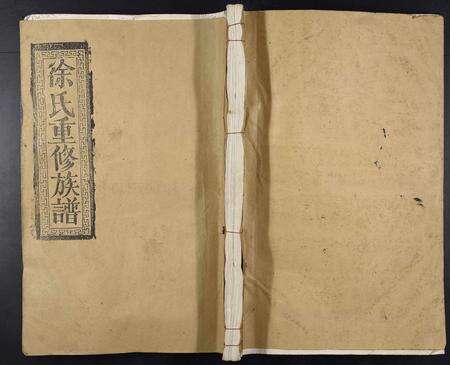 徐氏重修族譜